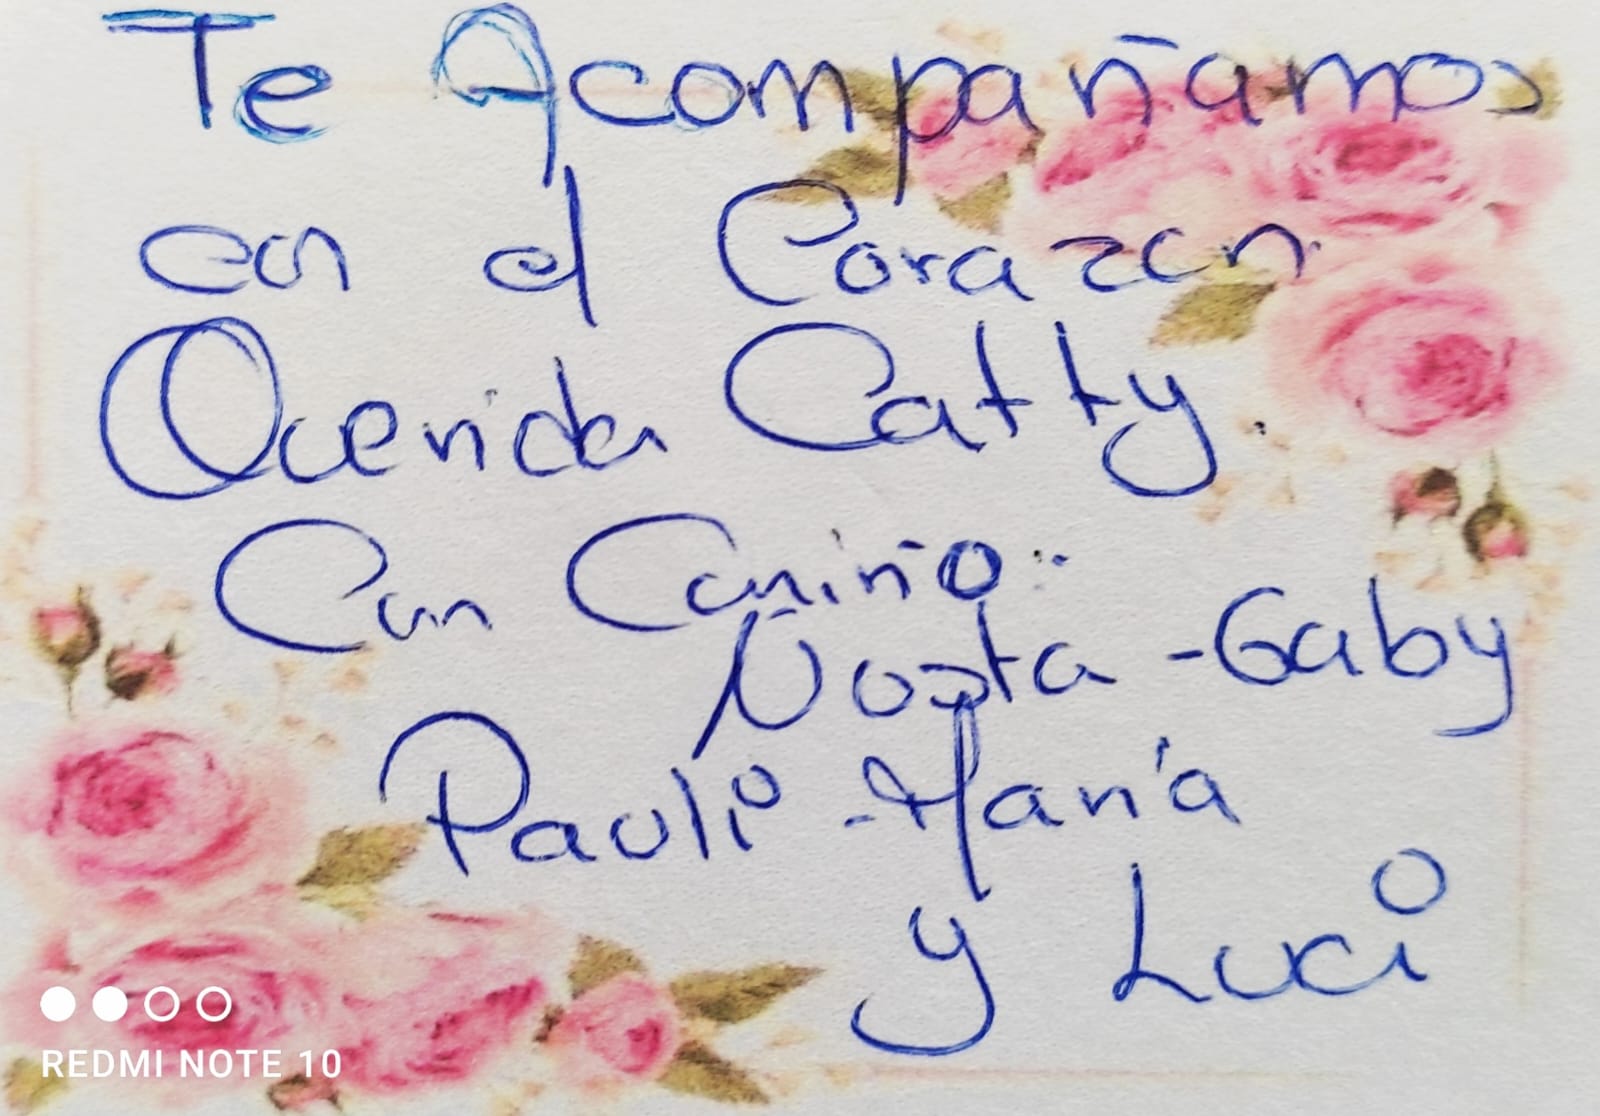 Te Acompañamos
en el Corazon
Querida Catty.
Con Cariño:
Ñosta - Gaby
Pauli - María
y Luci
REDMI NOTE 10